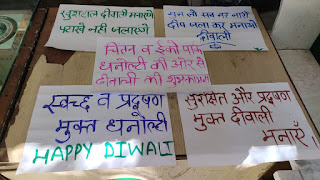 खुशहाल दीवाली मनाएंगे
पटाखे नहीं जलाएंगे
सब नर नारी
दीप जला कर मनाओ
दीवाली
चिंतन व ईको पार्क
धनोल्टी की ओर से
दीवाली की शुभकामनाएं
स्वच्छ व प्रदूषण
मुक्त धनोल्टी
HAPPY DIWALI
सुरक्षित और प्रदूषण
मुक्त दीवाली
मनाएँ।